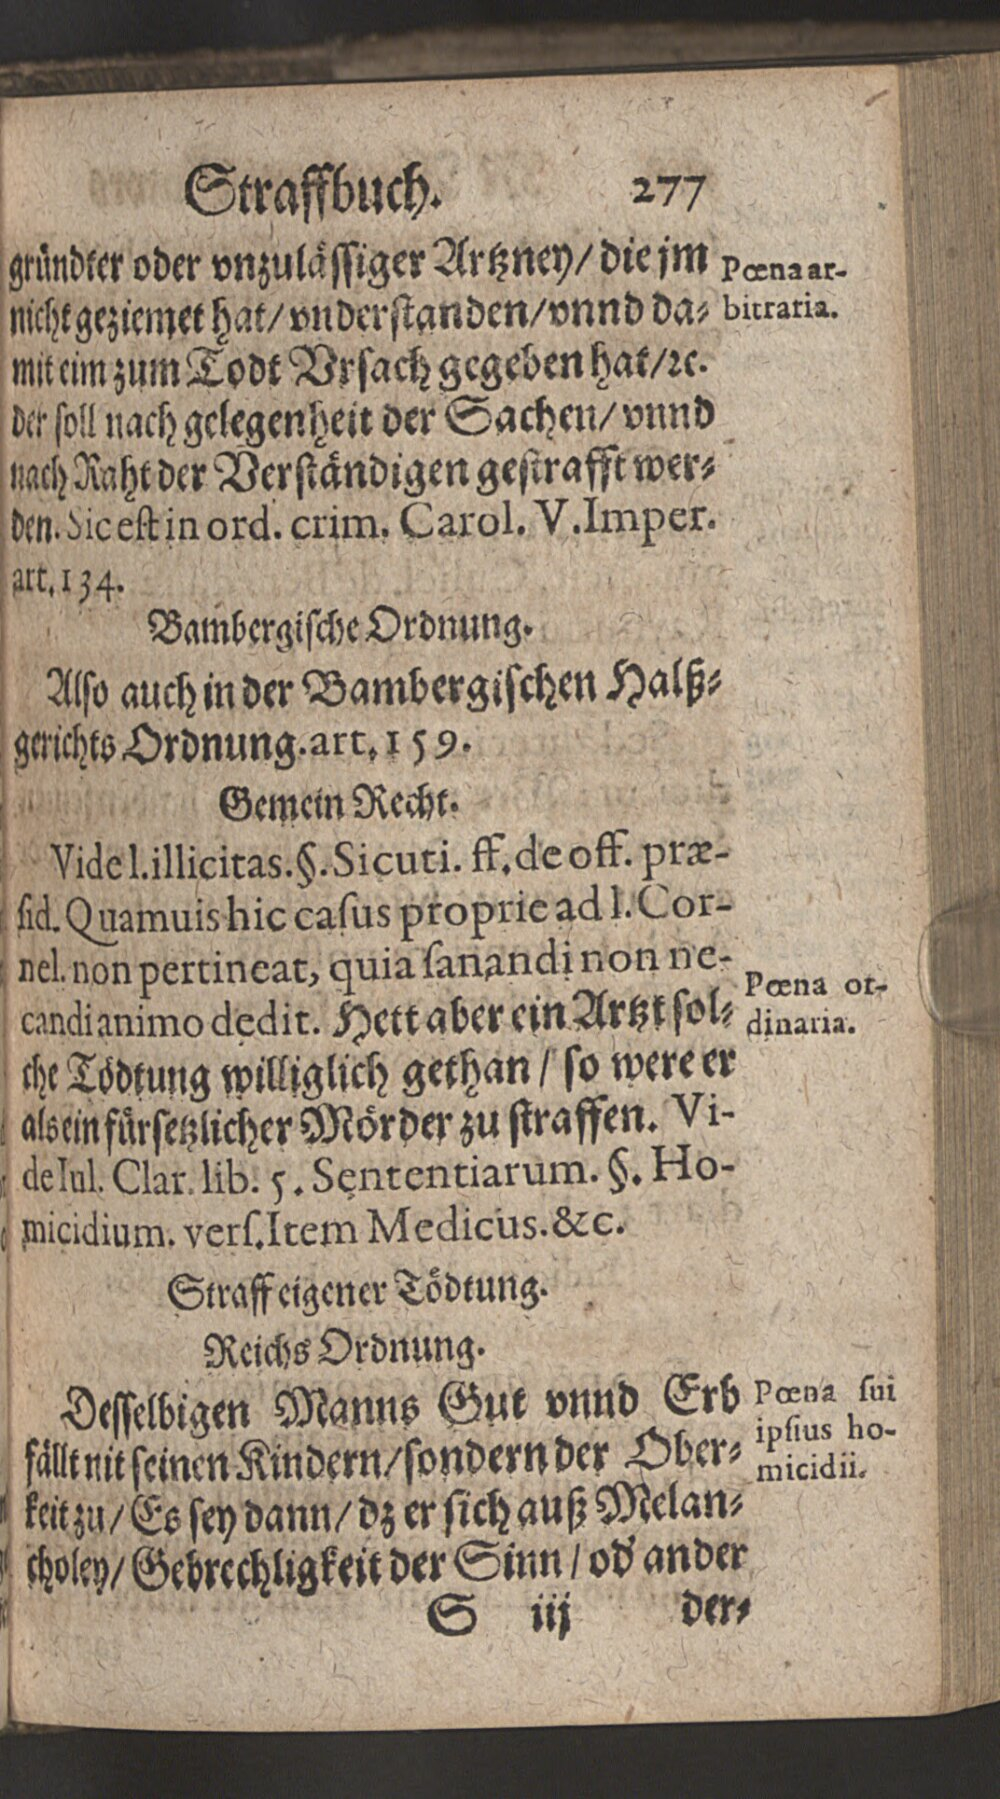 Straffbuch. 277
gründter oder vnzulässiger Artzney/ die jm
nicht geziemet hat/ vnderstanden/ vnnd da-
mit eim zum Todt Vrsach gegeben hat/ ꝛc.
der soll nach gelegenheit der Sachen/ vnnd
nach Raht der Verständigen gestrafft wer-
den. Sic est in ord. crim. Carol. V. Imper.
art. 134.
Pœna ar-
bitraria.
Bambergische Ordnung.
Also auch in der Bambergischen Halß-
gerichts Ordnung. art. 159.
Gemein Recht.
Vide l. illicitas. §. Sicuti. ff. de off. præ-
sid. Quamuis hic casus proprie ad l. Cor-
nel. non pertineat, quia sanandi non ne-
candi animo dedit. Hett aber ein Artzt sol-
che Tödtung williglich gethan / so were er
als ein fürsetzlicher Mörder zu straffen. Vi-
de Iul. Clar. lib. 5. Sententiarum. §. Ho-
micidium. vers. Item Medicus. &c.
Pœna or-
dinaria.
Straff eigener Tödtung.
Reichs Ordnung.
Desselbigen Manns Gut vnnd Erb
fällt nit seinen Kindern/ sondern der Ober-
keit zu/ Es sey dann/ dz er sich auß Melan-
choley/ Gebrechligkeit der Sinn / od' ander
Pœna sui
ipsius ho-
micidii.
S iij der-